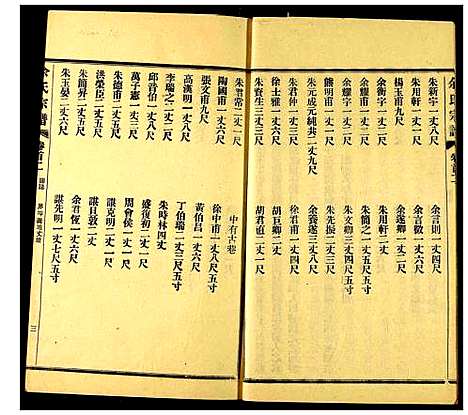 余氏宗譜
朱新宇一丈八尺
朱用軒一丈二尺
楊玉甫二丈九尺
余衡宇一丈二尺
余耀宇一丈二尺
余耀甫一丈二尺
余明甫一丈二尺
朱元成元組共二丈九尺
朱君仲一丈三尺
徐士敬一丈三尺
朱賓生一丈三尺
余言則一丈四尺
余言徵一丈六尺
朱用軒二丈
朱簡之一丈六尺
朱文卿三丈四尺
朱先振二丈三尺
余養遂三丈三尺
徐君甫一丈四尺
胡巨卿二丈
胡君直二丈一尺
朱君常二丈一尺
陶國甫一丈六尺
張文甫九尺
高漢明一丈一尺
李瑞之一丈一尺
邱晉伯一丈一尺
萬子憲一丈一尺
朱德甫二丈五尺
洪榮臣一丈五尺
朱簡昇一丈五尺
朱玉晏二丈六尺
中有古巷
徐中甫一丈八尺五寸
黃伯昌一丈六尺
丁伯瑞二丈三尺五寸
朱時林四丈
盛復初二丈三尺
周會侯一丈一尺
諶克明一丈一尺
諶貝敦二丈
余君恆一丈六尺
諶先明一丈七尺五寸
余氏宗譜
卷首一
三